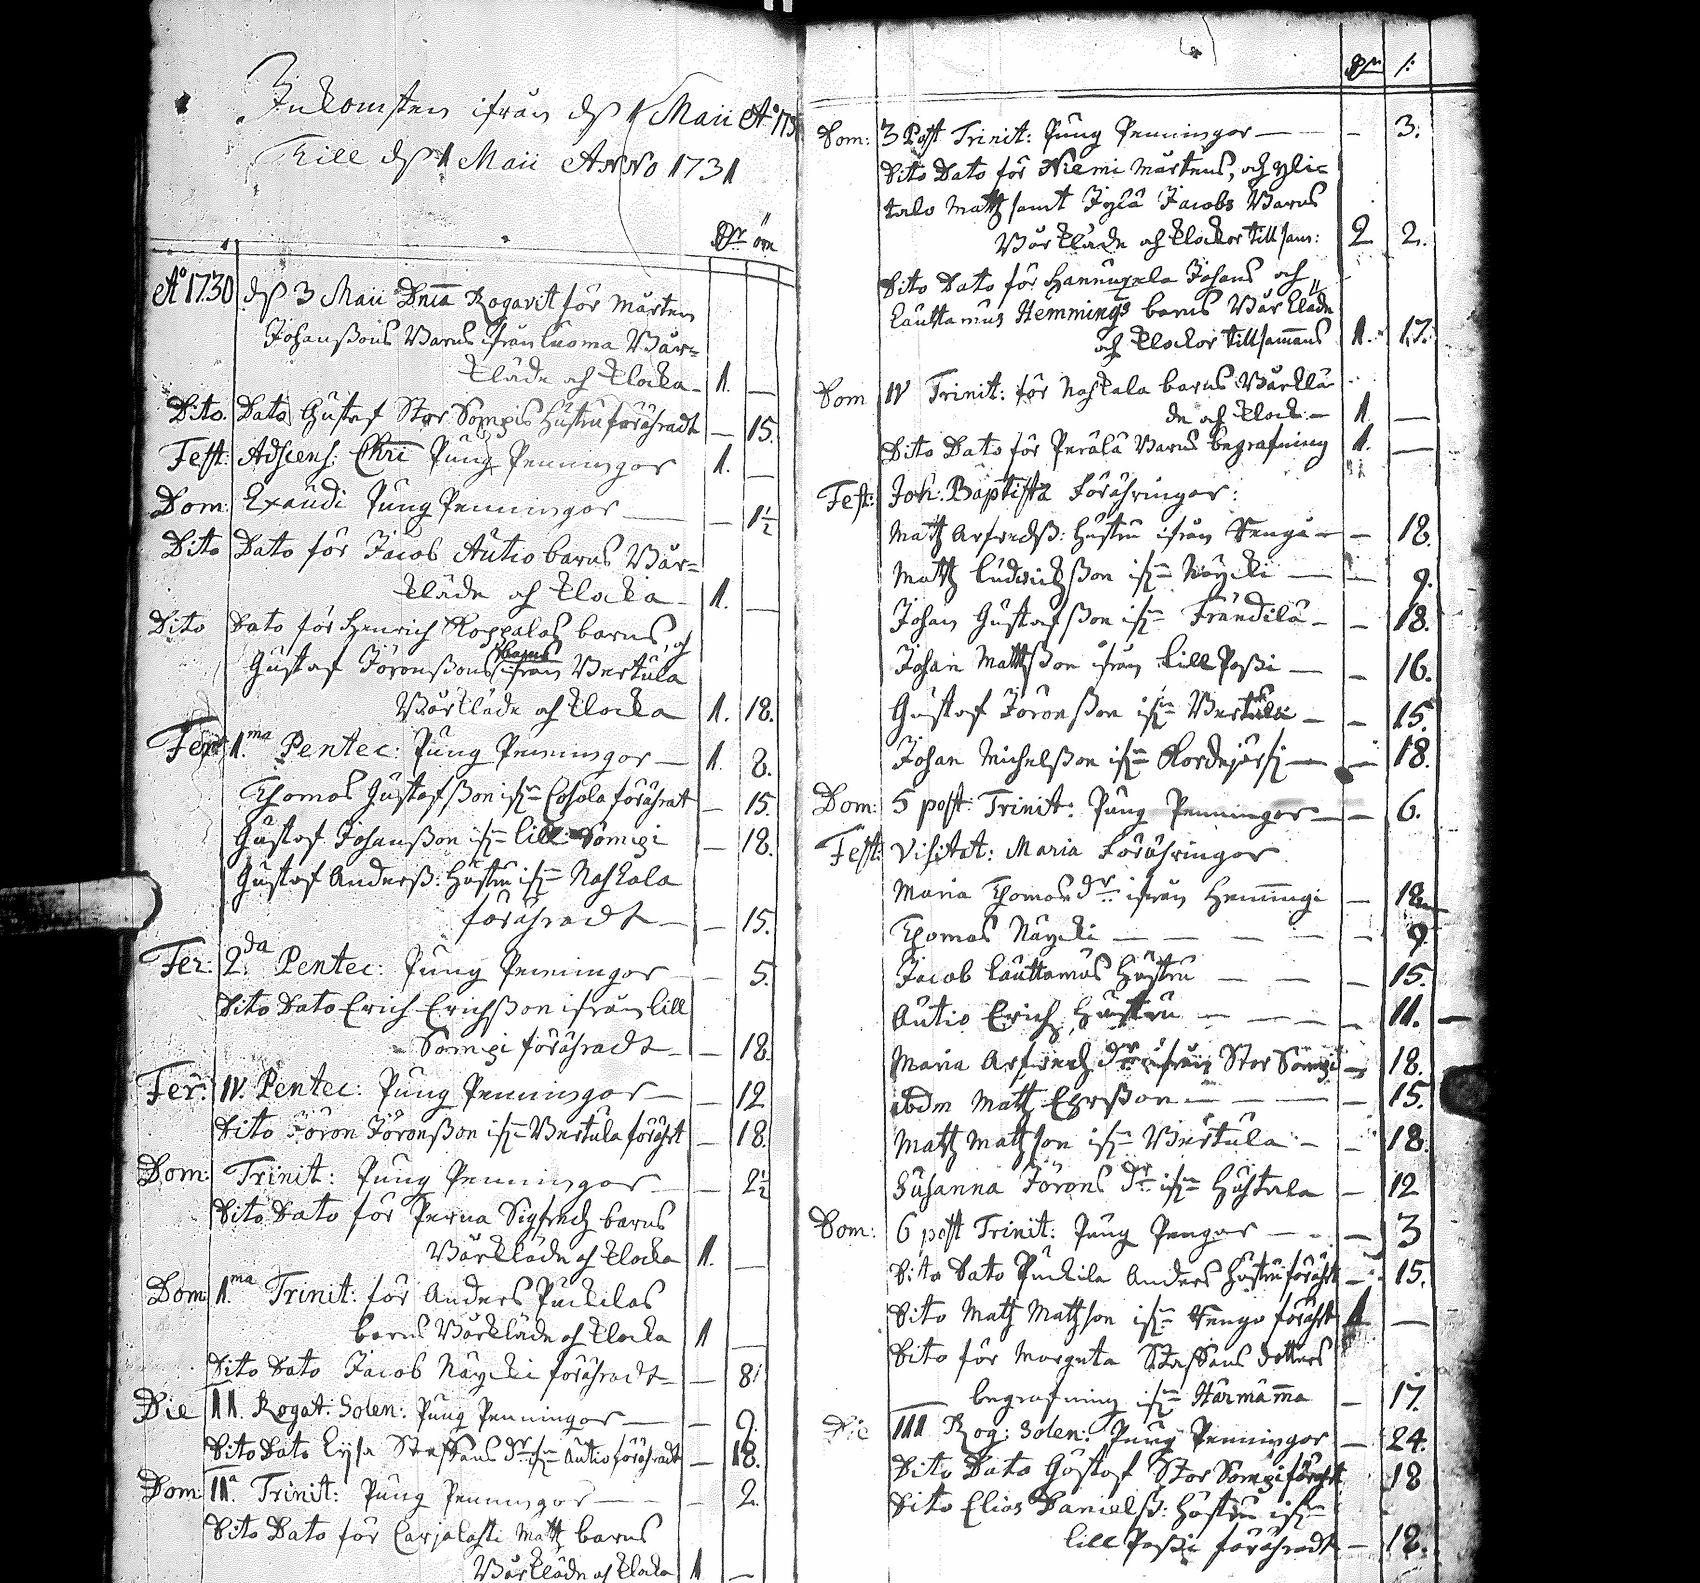 Inkomsten ifrån d. 1 Maii A:o 173
Till d. 1 Maii Anno 1731
Dr öre
A:o 1730 d. 3 Maii Dnica Rogavit för Mårten
Johanßons Barns ifrån Luoma Bår-
kläde och klocka 1. —
Dito Dato Gustaf Stor Sompis Hustru förähradt — 15.
Fest: Adscens: Chri Pung Penningar 1. —
Dom: Exaudi Pung Penningar — — 1½
Dito Dato för Jacob Autio barns Bår-
kläde och klocka 1. —
Dito Dato för Henrich Roppalas barns, och
Gustaf Jöronßons barns ifrån Bertula
Bårkläde och klocka 1. 18.
Fer: 1.ma Pentec: Pung Penningar — 1. 8.
Thomas Gustafßon ifrn Cosola förährat — 15.
Gustaf Johanßon ifrn Lill Sompi — 18.
Gustaf Anderß: Hustru ifrn Naskala
förähradt — — 15.
Fer: 2.da Pentec: Pung Penningar — 5.
Dito Dato Erich Erichßon ifrån Lill
Sompi förähradt — — 18.
Fer: IV. Pentec: Pung Penningar — — 12
Dito Jöron Jöronßon ifrn Bertula förährt — 18.
Dom: Trinit: Pung Penningar — 2½
Dito Dato för Perna Sigfredz barns
Bårkläde och klocka 1. —
Dom 1.ma Trinit: för Anders Puckilas
barns Bårkläde och klocka 1 —
Dito Dato Jacob Näycki förähradt — — 8.
Die II. Rogat: Solen: Pung Penningar — — 9.
Dito Dato Lysa Staffans dr ifrn Autio förähradt — 18.
Dom: II.a Trinit: Pung Penningar — — 2.
Dito Dato för Carjalasti Matz barns
Bårkläde och klocka 1 —
Dr /:
Dom: 3 Post Trinit: Pung Penningar — — 3.
Dito Dato för Niemi Mårtens, och Yli-
talo Matz samt Jylä Jacobs Barns
Bårkläde och klockor tillsam: 2 2.
Dito Dato för Hannupela Johans och
Lauttamus Hemmings barns Bårkläde
och klockor tillsammans 1. 17.
Dom IV Trinit: för Naskala barns Bårklä
de och klock — 1. —
Dito Dato för Perälä Barns begrafning 1. —
Fest: Joh: Baptistæ Förähringar:
Matz Arfvedß: Hustru ifrån Kengä — — 18.
Matz Ludvichßon ifrn Näycki — — 9.
Johan Gustafßon ifrn Frändilä — — 18.
Johan Mattßon ifrån Lill Paßi — — 16.
Gustaf Jöronßon ifrn Bertula — — 15.
Johan Michelßon ifrn Kordejärfi — — 18.
Dom: 5 post: Trinit: Pung Penningar — — 6.
Fest: Visitat: Maria Förähringar
Maria Thomas dr ifrån Hemmingi — 18
Thomas Näycki — — — — 9.
Jacob Lauttamus Hustru — — — 15.
Autio Erich Hustru — — — — 11.
Maria Arfvedz dr ifrån Stor Sompi — 18.
ibdm Matz Ehrßon — — — 15.
Matz Matzson ifrn Bertula — — 18.
Susanna Jörons dr ifrn Huhtala — 12
Dom: 6 post Trinit: Pung Pengar — — 3
Dito Dato Puckila Anders Hustru förährt — 15.
Dito Matz Matzson ifrn Kengo förährt 1 —
Dito för Margeta Staffans dotters
begrafning ifrn Härmämä — 17.
Die III Rog: Solen: Pung Penningar — 24.
Dito Dato Gustaf Stor Sompi förährt 18
Dito Elias Danielß: Hustru ifrn
Lill Paßi förähradt — 18.